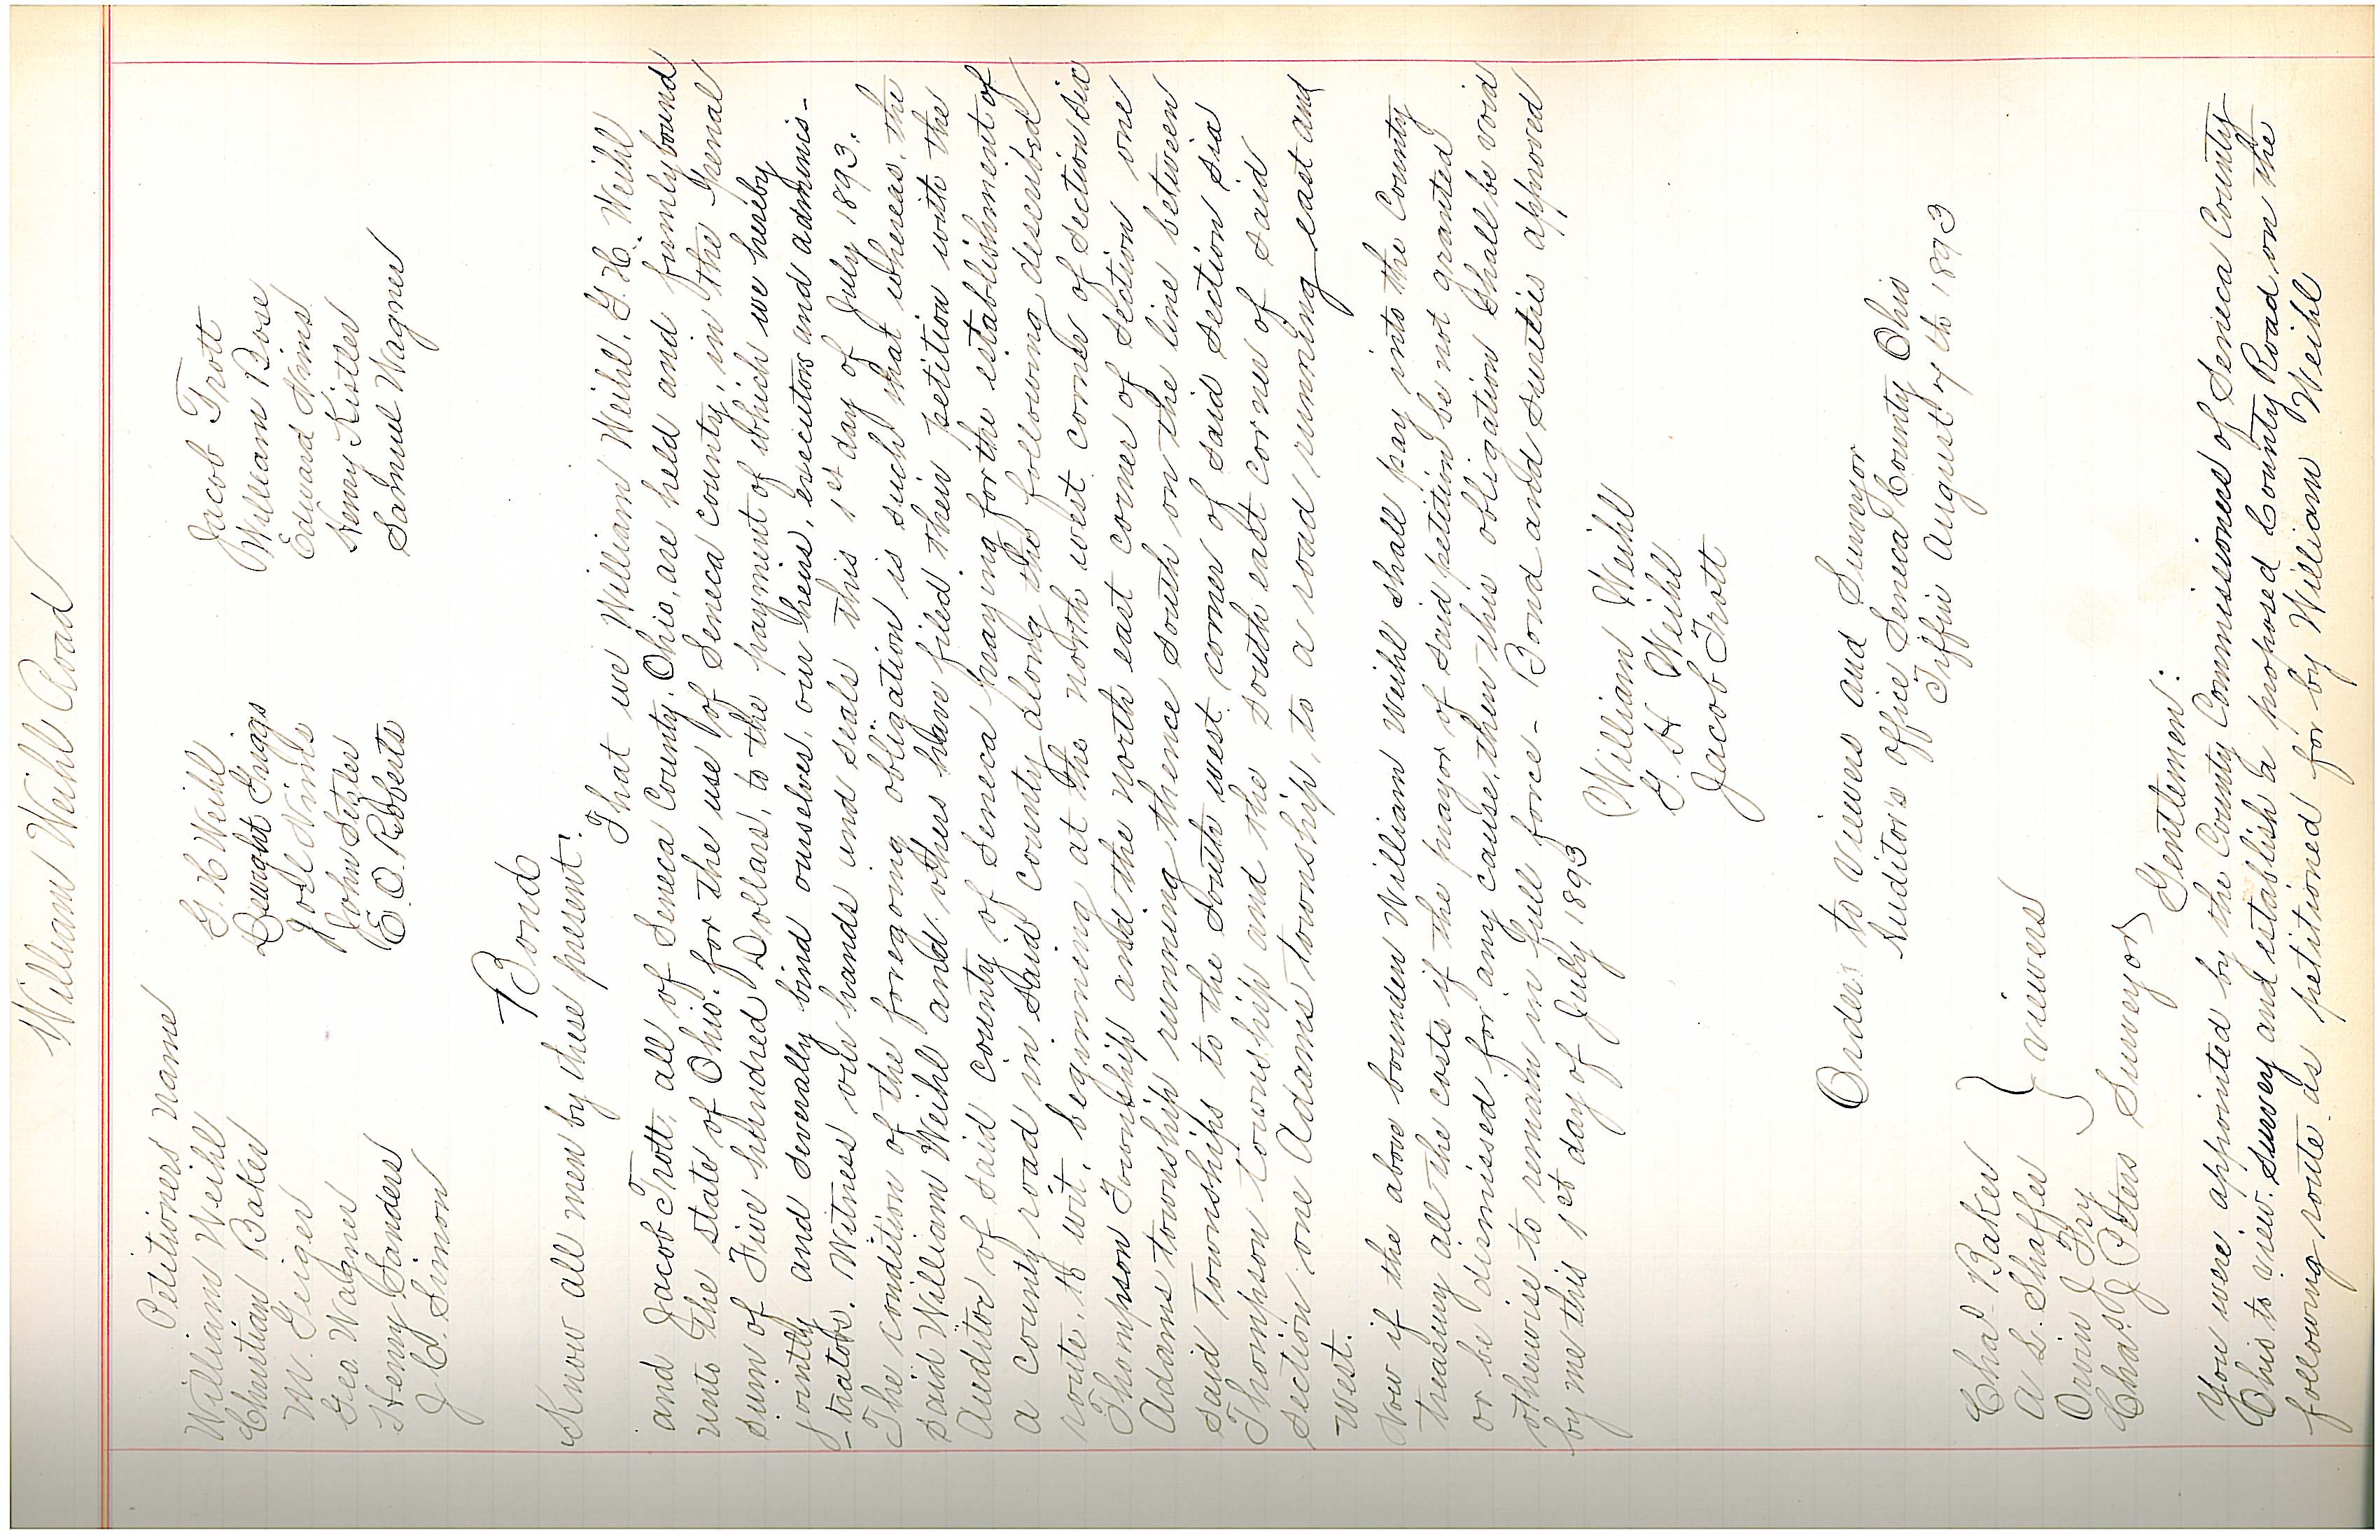 William Weihl Road
Petitioners Name
William Weihl
Christian Baker
M. Geiger
Geo Wagner
Henry Sanders
J C. Simon
G. H Weihl
Dwight Griggs
Joel Nims
John Setzler
E. O. Roberts
Jacob Trott
William Bose
Edward Nims
Henry Kistler
Samuel Wagner
Bond
Know all men by these present:
That we William Weihl, G. H. Weihl
and Jacob Trott, all of Seneca County, Ohio, are held and firmly bound
unto the state of Ohio, for the use of Seneca county, in the penal
sum of Five hundred Dollars, to the payment of which we hereby
jointly and severally bind ourselves, our heirs, executors and adminis-
-trators. Witness our hands and seals this 1st day of July 1893.
The condition of the foregoing obligation is such that whereas, the
said William Weihl and others have filed their petition with the
Auditor of said county of Seneca praying for the establishment of
a county road in said county along the following described
route, to wit, beginning at the north west corner of section six
Thompson Township and the north east corner of section one
Adams township running thence south on the line between
said townships to the south west corner of said section six
Thompson township and the south east corner of said
section one Adams township, to a road running east and
west.
Now if the above bounden William Weihl shall pay into the County
treasury all the costs if the prayor of said petition be not granted
or be dismissed for any cause, then this obligation shall be void
otherwise to remain in full force - Bond and sureties approved
by me this 1st day of July 1893
William Weihl
G H Weihl
Jacob Trott
Orders to Viewers and Surveyor
Auditor's office Seneca County Ohio
Tiffin August 7th 1893
Chas. Baker
A L. Shaffer
Orvin J Fry
} Viewers
Chas. J Peters Surveyor
Gentlemen:
You were appointed by the County Commissioners of Seneca County
Ohio to view, survey and establish a proposed County Road on the
following route as petitioned for by William Weihl